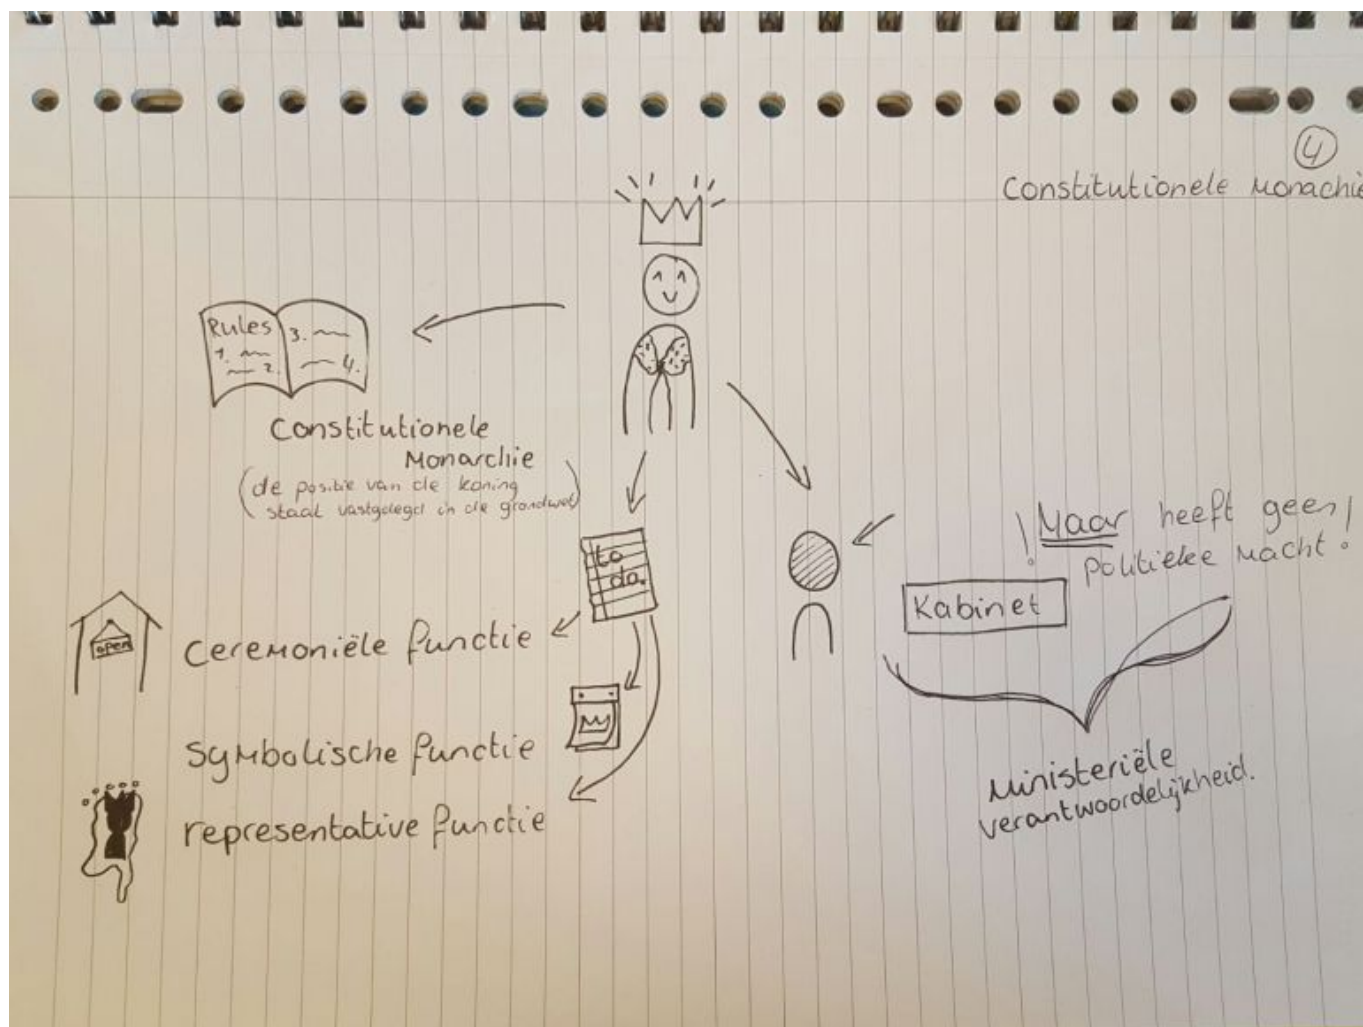 4
Constitutionele Monachie
Rules
1.
2.
3.
4.
Constitutionele
Monarchie
(de positie van de koning
staat vastgelegd in de grondwet)
to
do.
open
Ceremoniële functie
Symbolische functie
representative functie
! Maar heeft geen !
politieke macht
Kabinet
Ministeriële
verantwoordelijkheid.